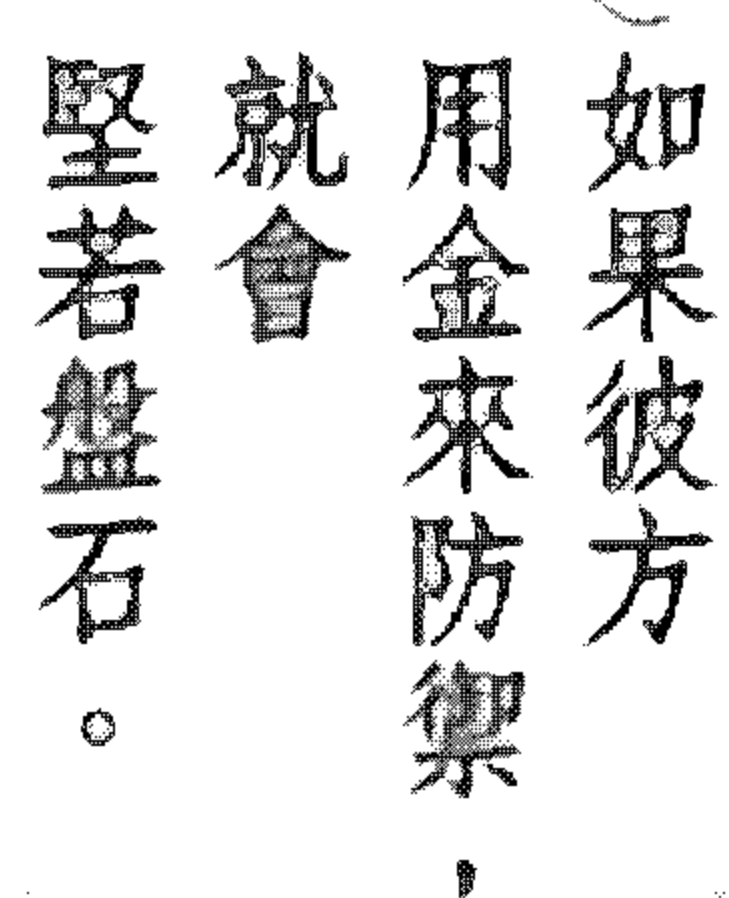 如果彼方
用金來防禦，
就會
堅若盤石。